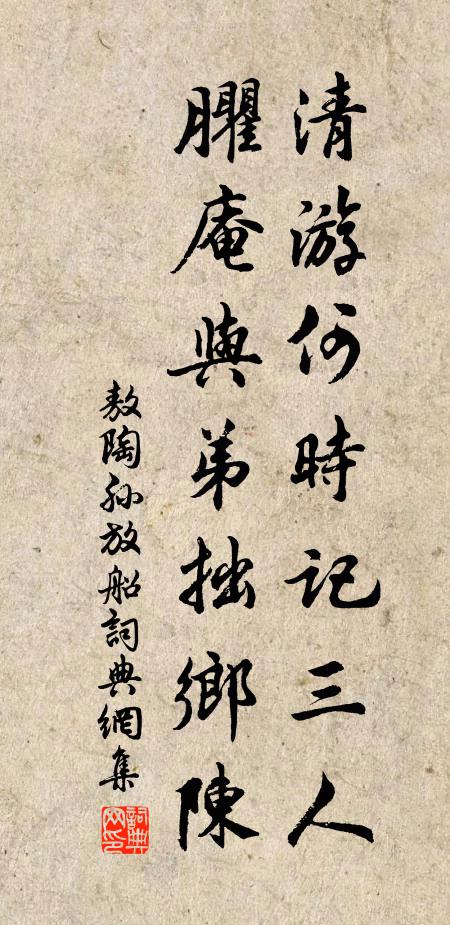 清游何時記三人
臞庵與弟拙鄉陳
敖陶孙放船詞典網集
詞典网印